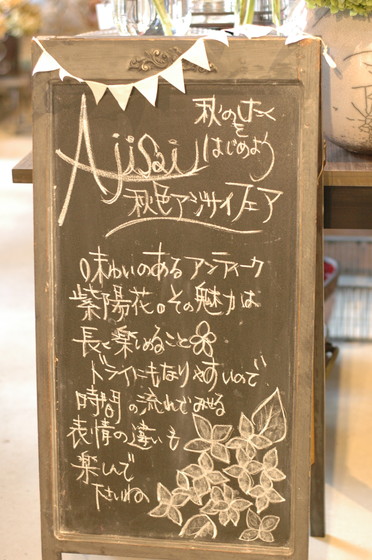 Ajisai
秋のしたく
を
はじめよう
秋色アジサイフェア
味わいのあるアンティーク
紫陽花。その魅力は
長く楽しめること
ドライにもなりやすいので、
時間の流れでみせる
表情の違いも
楽しんで
下さいね